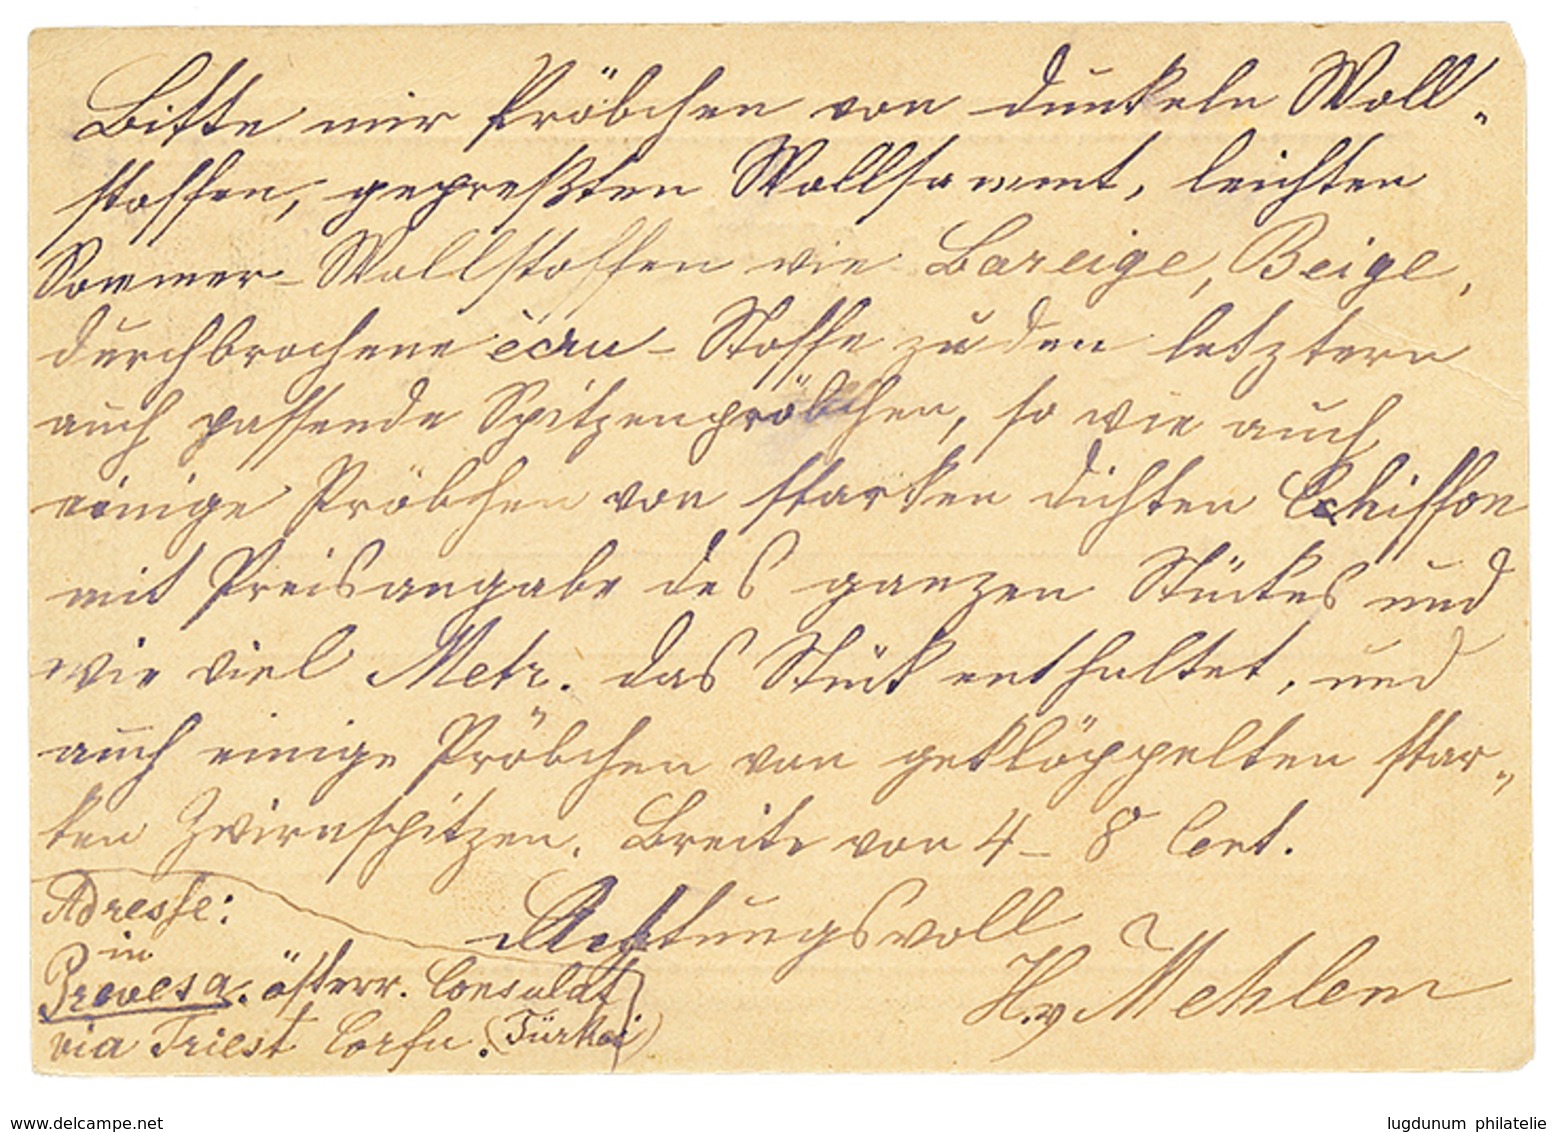 Bitte mir Pröbchen von dunkeln Woll„
stoffen, gepreßten Wollsammt, leichten
Sommer-Wollstoffen wie Bareige, Beige,
durchbrochene ècru-Stoffe zu den letztern
auch passende Spitzenpröbchen, so wie auch
einige Pröbchen von starken dichten Chiffon
mit Preisangabe des ganzen Stückes und
wie viel Metr. das Stück enthaltet, und
auch einige Pröbchen von geklöppelten star„
ken Zwirnspitzen, Breite von 4-8 Cent.
Achtungsvoll
H. v Mehlem
Adresse:
in
Prevesa. österr. Consulat
via Triest Corfu. (Türkei)
www.delcampe.net
lugdunum philatelie